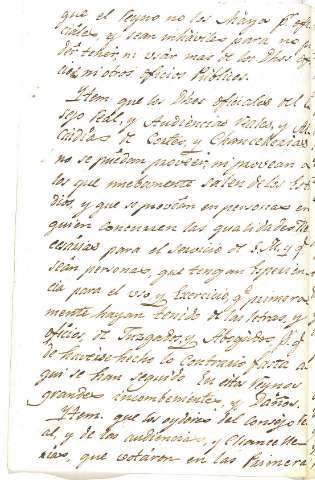 que el Reyno no los Haya pr. ofi
ciales, y sean inhaviles para no po
der tener, ni usar mas de los Dhos ofi
cios, ni otros oficios Publicos.
Item que los Dhos oficiales del Con
sejo Real, y Audiencias Reales, y Al
caldias de Corte, y Chancellerias
no se puedan proveer, ni provean a
los que nuebamente salen de los Estu
dios, y que se provean en personas en
quien concurran las qualidades Ne
cesarias para el servicio de S. M. y q.
sean personas, que tengan Experien
cia para el uso, y Exercicio, q. primera
mente hayan tenido de las letras, y
oficios, de Juzgados, y Abogados, pr. q.
de haverse hecho lo Contrario fasta a
qui se han seguido en estos Reynos
grandes incombenientes, y Daños.
Item. que los oydores del consejo Re
al, y de las audiencias, y Chancelle
rias, que votaren en las Primera